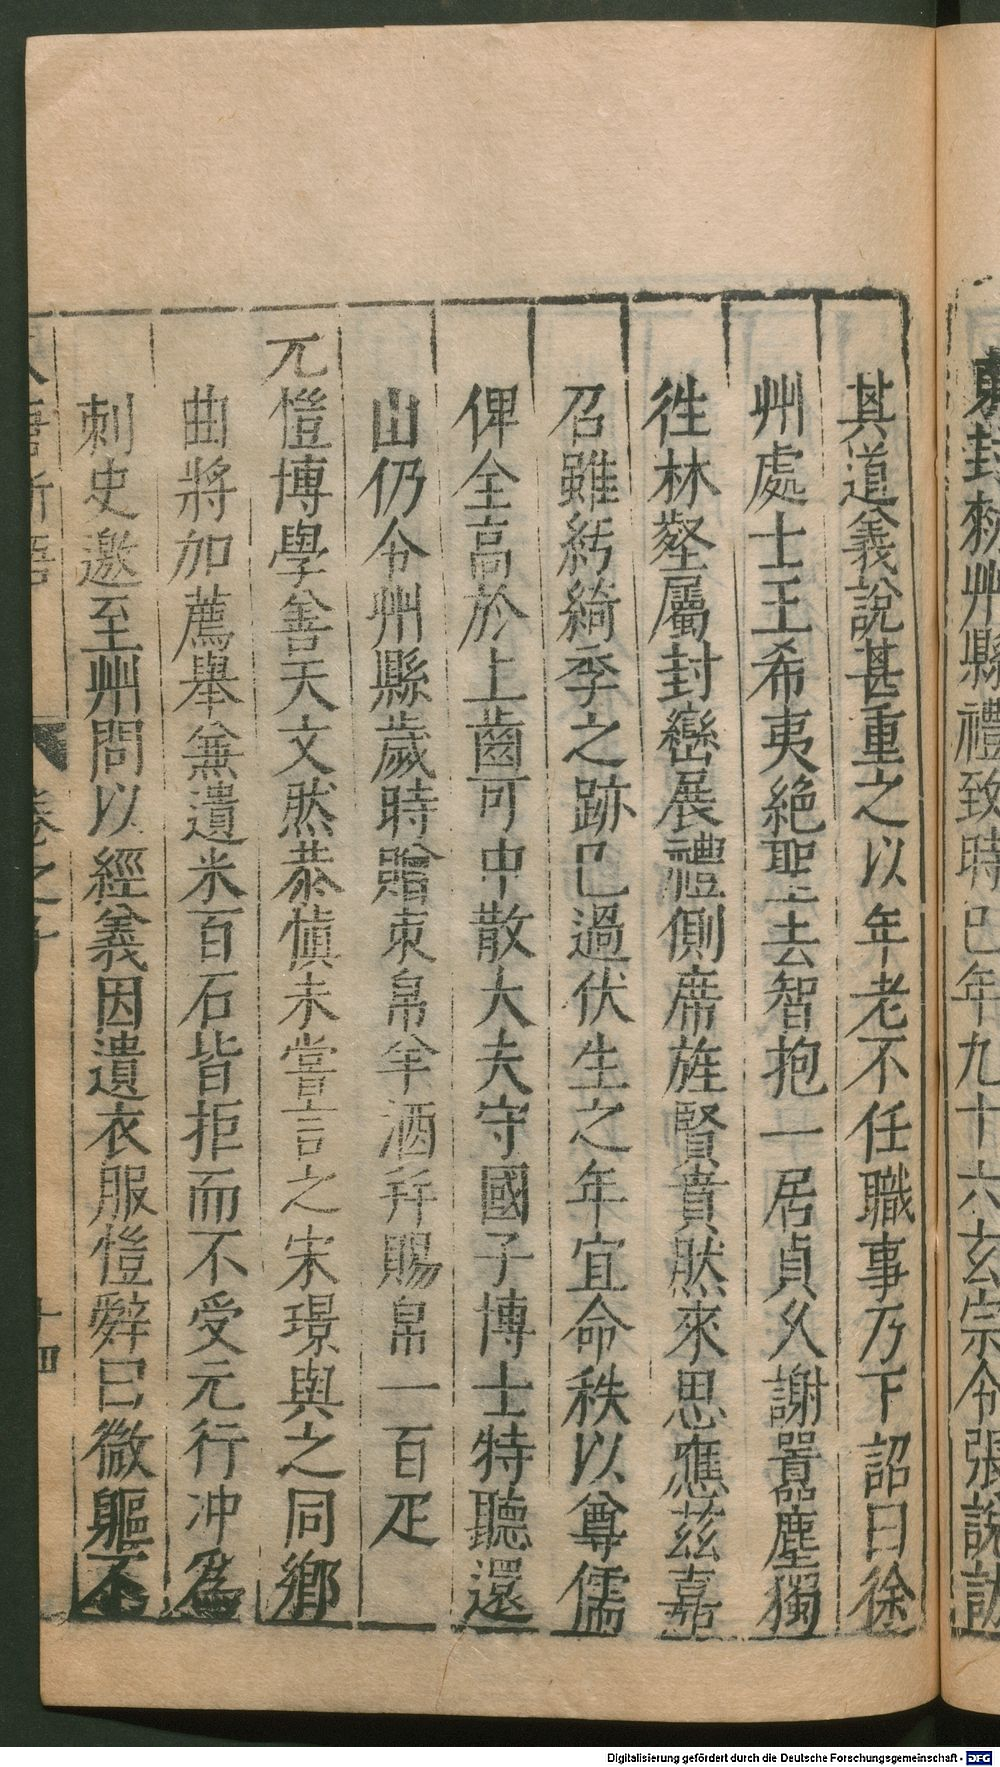 東封勑州縣禮致時巳年九十六玄宗令張說訪
其道義說甚重之以年老不任職事乃下詔曰徐
州處士王希夷絶聖去智抱一居貞久謝囂塵獨
徃林壑屬封巒展禮側席旌賢賁然來思應茲嘉
召雖紆綺季之跡巳過伏生之年宜命秩以尊儒
俾全高於上齒可中散大夫守國子博士特聽還
山仍令州縣歲時贈束帛羊酒并賜帛一百疋
亓愷博學善天文然恭愼未嘗言之宋璟與之同鄉
曲將加薦舉兼遺米百石皆拒而不受元行冲爲
刺史邀至州問以經義因遺衣服愷辭曰微軀不
唐新語 卷之十 十四
Digitalisierung gefördert durch die Deutsche Forschungsgemeinschaft - DFG